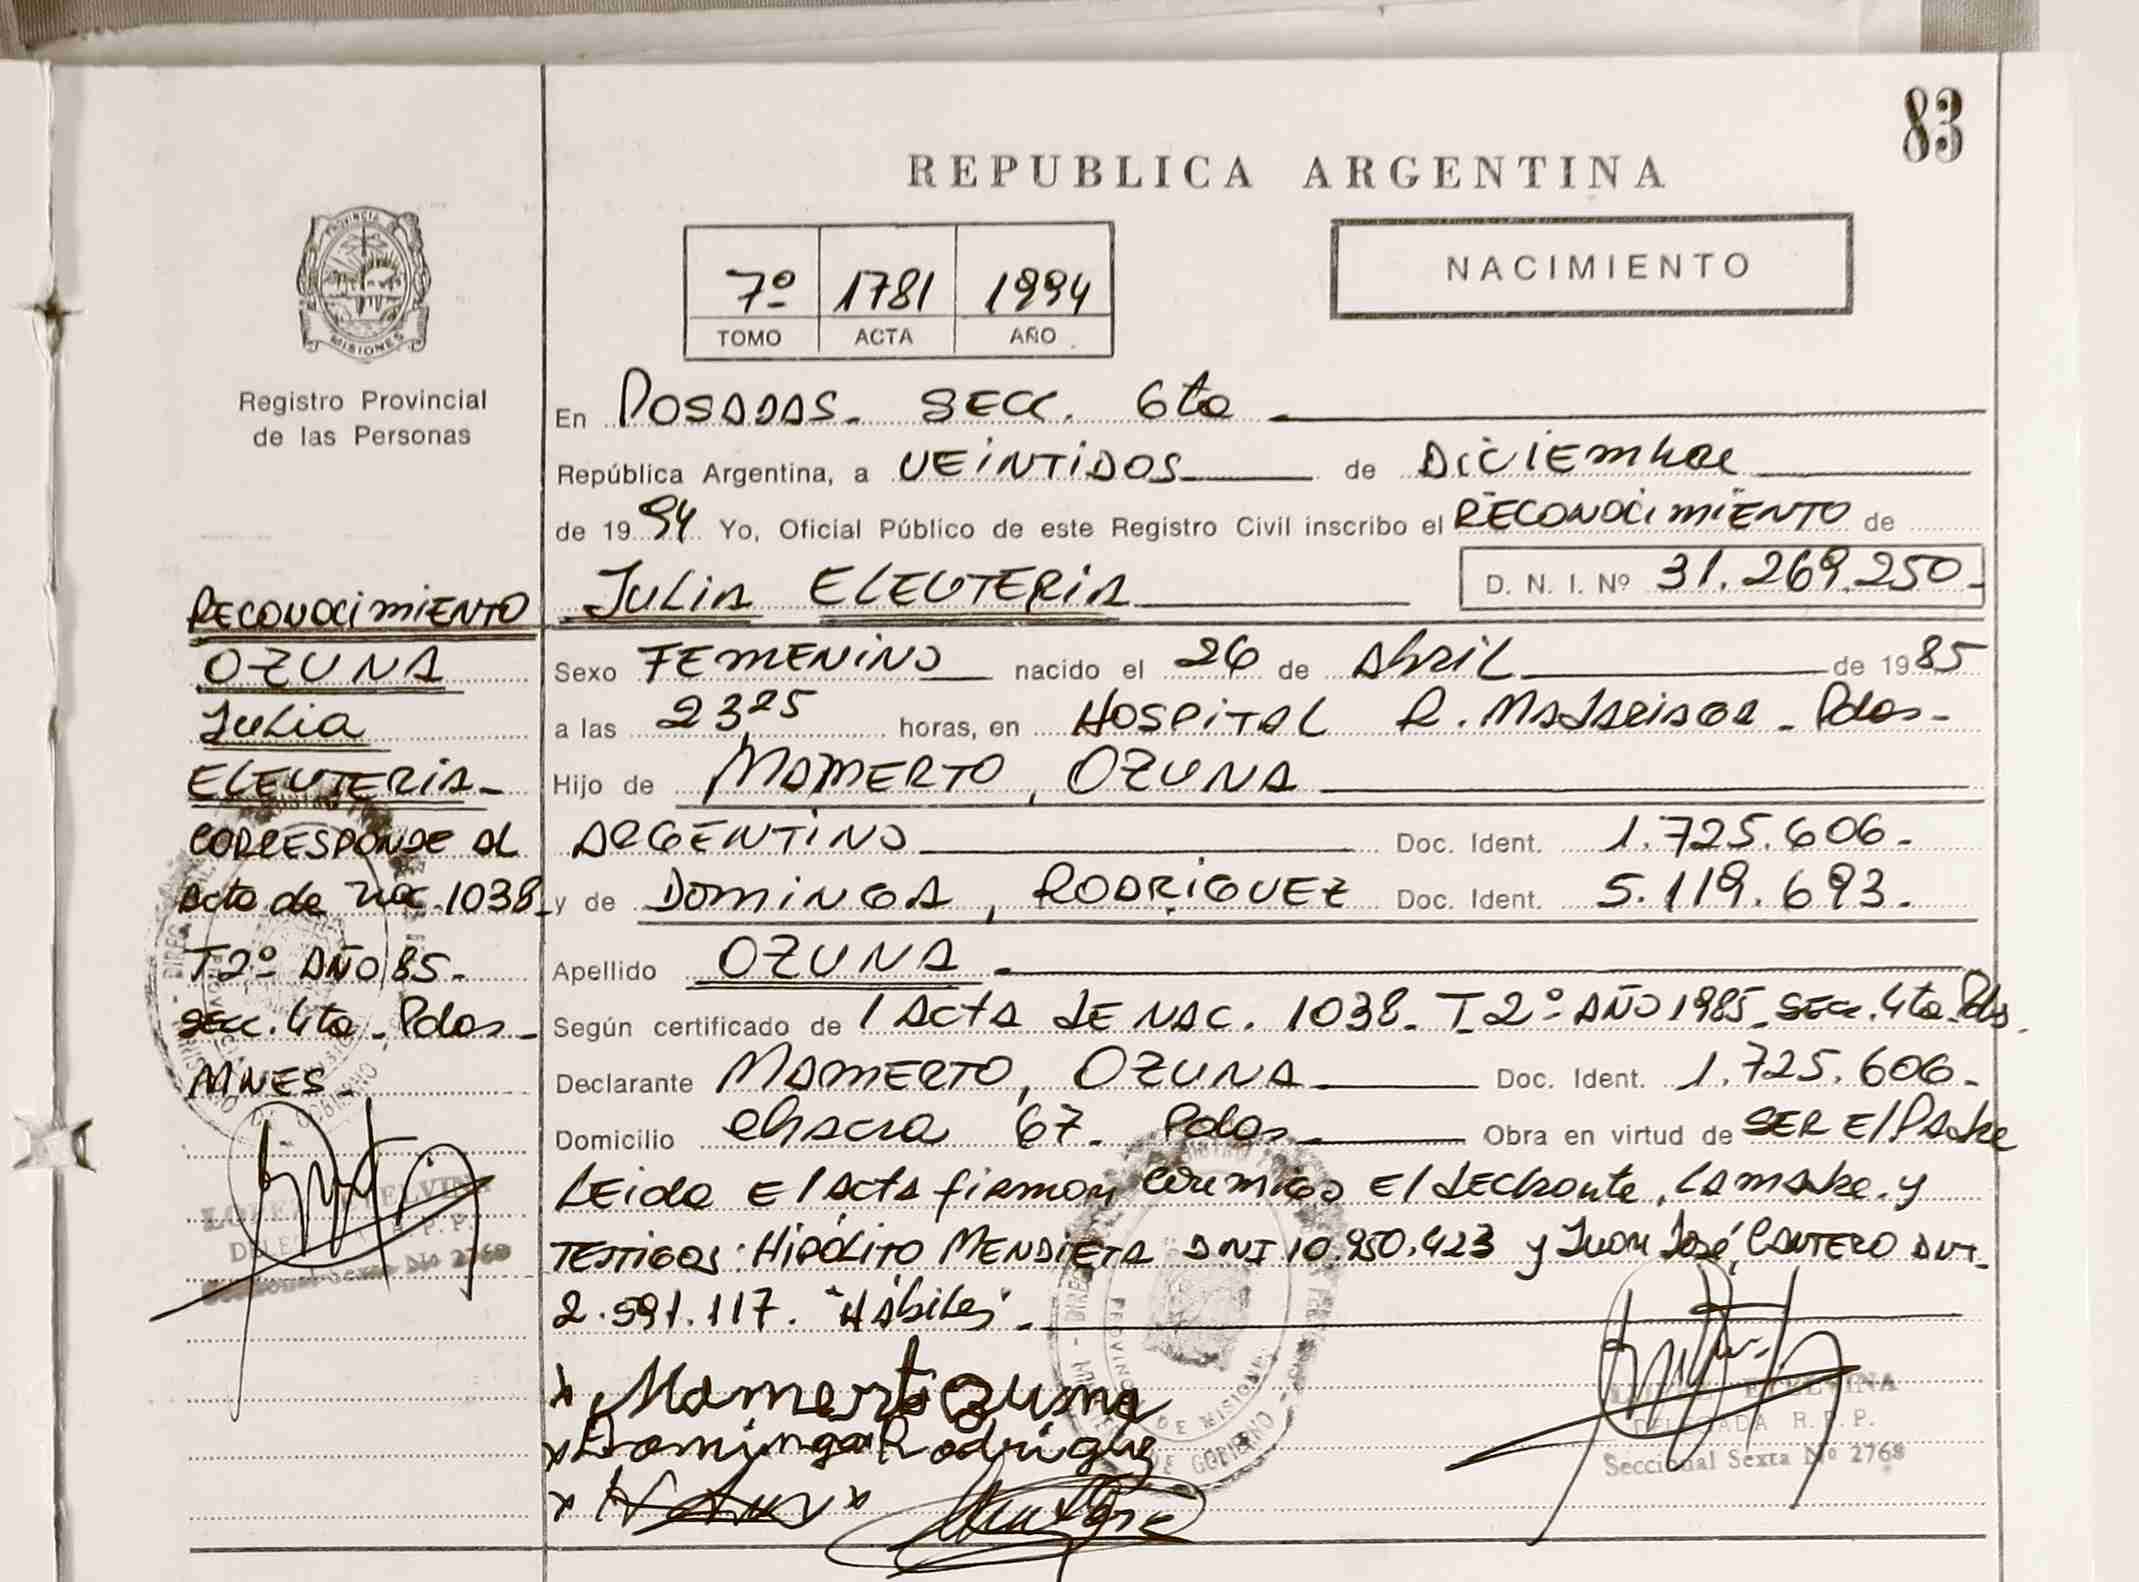 83
REPUBLICA ARGENTINA
7º 1781 1994
TOMO ACTA AÑO
NACIMIENTO
PROVINCIA
MISIONES
Registro Provincial
de las Personas
En POSADAS. SECC. 6ta
República Argentina, a VEINTIDOS de DICIEMBRE
de 1994 Yo, Oficial Público de este Registro Civil inscribo el RECONOCIMIENTO de
JULIA ELEUTERIA D. N. I. Nº 31.269.250-
Sexo FEMENINO nacido el 26 de Abril de 1985
a las 23 25 horas, en HOSPITAL R. MADARIAGA - Pdas-
Hijo de MAMERTO, OZUNA
ARGENTINO Doc. Ident. 1.725.606-
y de DOMINGA, RODRIGUEZ Doc. Ident. 5.119.693.
Apellido OZUNA.
Según certificado de 1 ACTA DE NAC. 1038- T-2º AÑO 1985- SECC. 4ta- Pdas.
Declarante MAMERTO, OZUNA Doc. Ident. 1.725.606-
Domicilio chacra 67- Pdas- Obra en virtud de SER El Padre
LEIDA El Acta firman conmigo El declarante, La madre y
TESTIGOS: HIPÓLITO MENDIETA DNI 10.950.423 y Juan José CANTERO DNI-
2.591.117. "Hábiles"-
x Mamerto Ozuna
x Dominga Rodriguez
RECONOCIMIENTO
OZUNA
Julia
ELEUTERIA-
CORRESPONDE AL
Acta de Nac. 1038-
T2º AÑO 85-
secc. 4ta - Pdas-
MNES-
ELVINA
Seccional Sexta Nº 2768
DELEGADA R. P. P.
Seccional Sexta Nº 2768
DE MISIONES
DE GOBIERNO